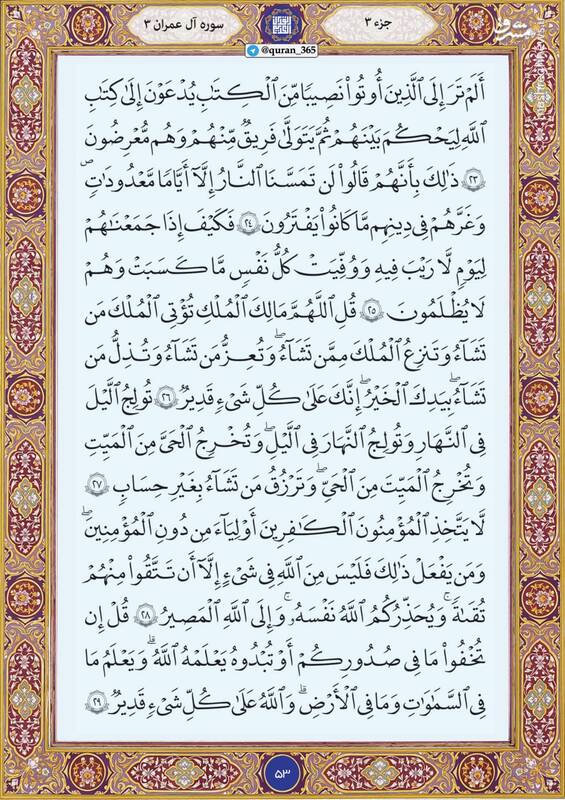 جزء ۳
سوره آل عمران ۳
@quran_365
مشرق
أَلَمْ تَرَ إِلَى ٱلَّذِينَ أُوتُوا۟ نَصِيبًا مِّنَ ٱلْكِتَٰبِ يُدْعَوْنَ إِلَىٰ كِتَٰبِ
ٱللَّهِ لِيَحْكُمَ بَيْنَهُمْ ثُمَّ يَتَوَلَّىٰ فَرِيقٌ مِّنْهُمْ وَهُم مُّعْرِضُونَ
﴿٢٣﴾ ذَٰلِكَ بِأَنَّهُمْ قَالُوا۟ لَن تَمَسَّنَا ٱلنَّارُ إِلَّآ أَيَّامًا مَّعْدُودَٰتٍ ۖ
وَغَرَّهُمْ فِى دِينِهِم مَّا كَانُوا۟ يَفْتَرُونَ ﴿٢٤﴾ فَكَيْفَ إِذَا جَمَعْنَٰهُمْ
لِيَوْمٍ لَّا رَيْبَ فِيهِ وَوُفِّيَتْ كُلُّ نَفْسٍ مَّا كَسَبَتْ وَهُمْ
لَا يُظْلَمُونَ ﴿٢٥﴾ قُلِ ٱللَّهُمَّ مَٰلِكَ ٱلْمُلْكِ تُؤْتِى ٱلْمُلْكَ مَن
تَشَآءُ وَتَنزِعُ ٱلْمُلْكَ مِمَّن تَشَآءُ وَتُعِزُّ مَن تَشَآءُ وَتُذِلُّ مَن
تَشَآءُ ۖ بِيَدِكَ ٱلْخَيْرُ ۖ إِنَّكَ عَلَىٰ كُلِّ شَىْءٍ قَدِيرٌ ﴿٢٦﴾ تُولِجُ ٱلَّيْلَ
فِى ٱلنَّهَارِ وَتُولِجُ ٱلنَّهَارَ فِى ٱلَّيْلِ ۖ وَتُخْرِجُ ٱلْحَىَّ مِنَ ٱلْمَيِّتِ
وَتُخْرِجُ ٱلْمَيِّتَ مِنَ ٱلْحَىِّ ۖ وَتَرْزُقُ مَن تَشَآءُ بِغَيْرِ حِسَابٍ ﴿٢٧﴾
لَّا يَتَّخِذِ ٱلْمُؤْمِنُونَ ٱلْكَٰفِرِينَ أَوْلِيَآءَ مِن دُونِ ٱلْمُؤْمِنِينَ ۖ
وَمَن يَفْعَلْ ذَٰلِكَ فَلَيْسَ مِنَ ٱللَّهِ فِى شَىْءٍ إِلَّآ أَن تَتَّقُوا۟ مِنْهُمْ
تُقَىٰةً ۗ وَيُحَذِّرُكُمُ ٱللَّهُ نَفْسَهُۥ ۗ وَإِلَى ٱللَّهِ ٱلْمَصِيرُ ﴿٢٨﴾ قُلْ إِن
تُخْفُوا۟ مَا فِى صُدُورِكُمْ أَوْ تُبْدُوهُ يَعْلَمْهُ ٱللَّهُ ۗ وَيَعْلَمُ مَا
فِى ٱلسَّمَٰوَٰتِ وَمَا فِى ٱلْأَرْضِ ۗ وَٱللَّهُ عَلَىٰ كُلِّ شَىْءٍ قَدِيرٌ ﴿٢٩﴾
۵۳